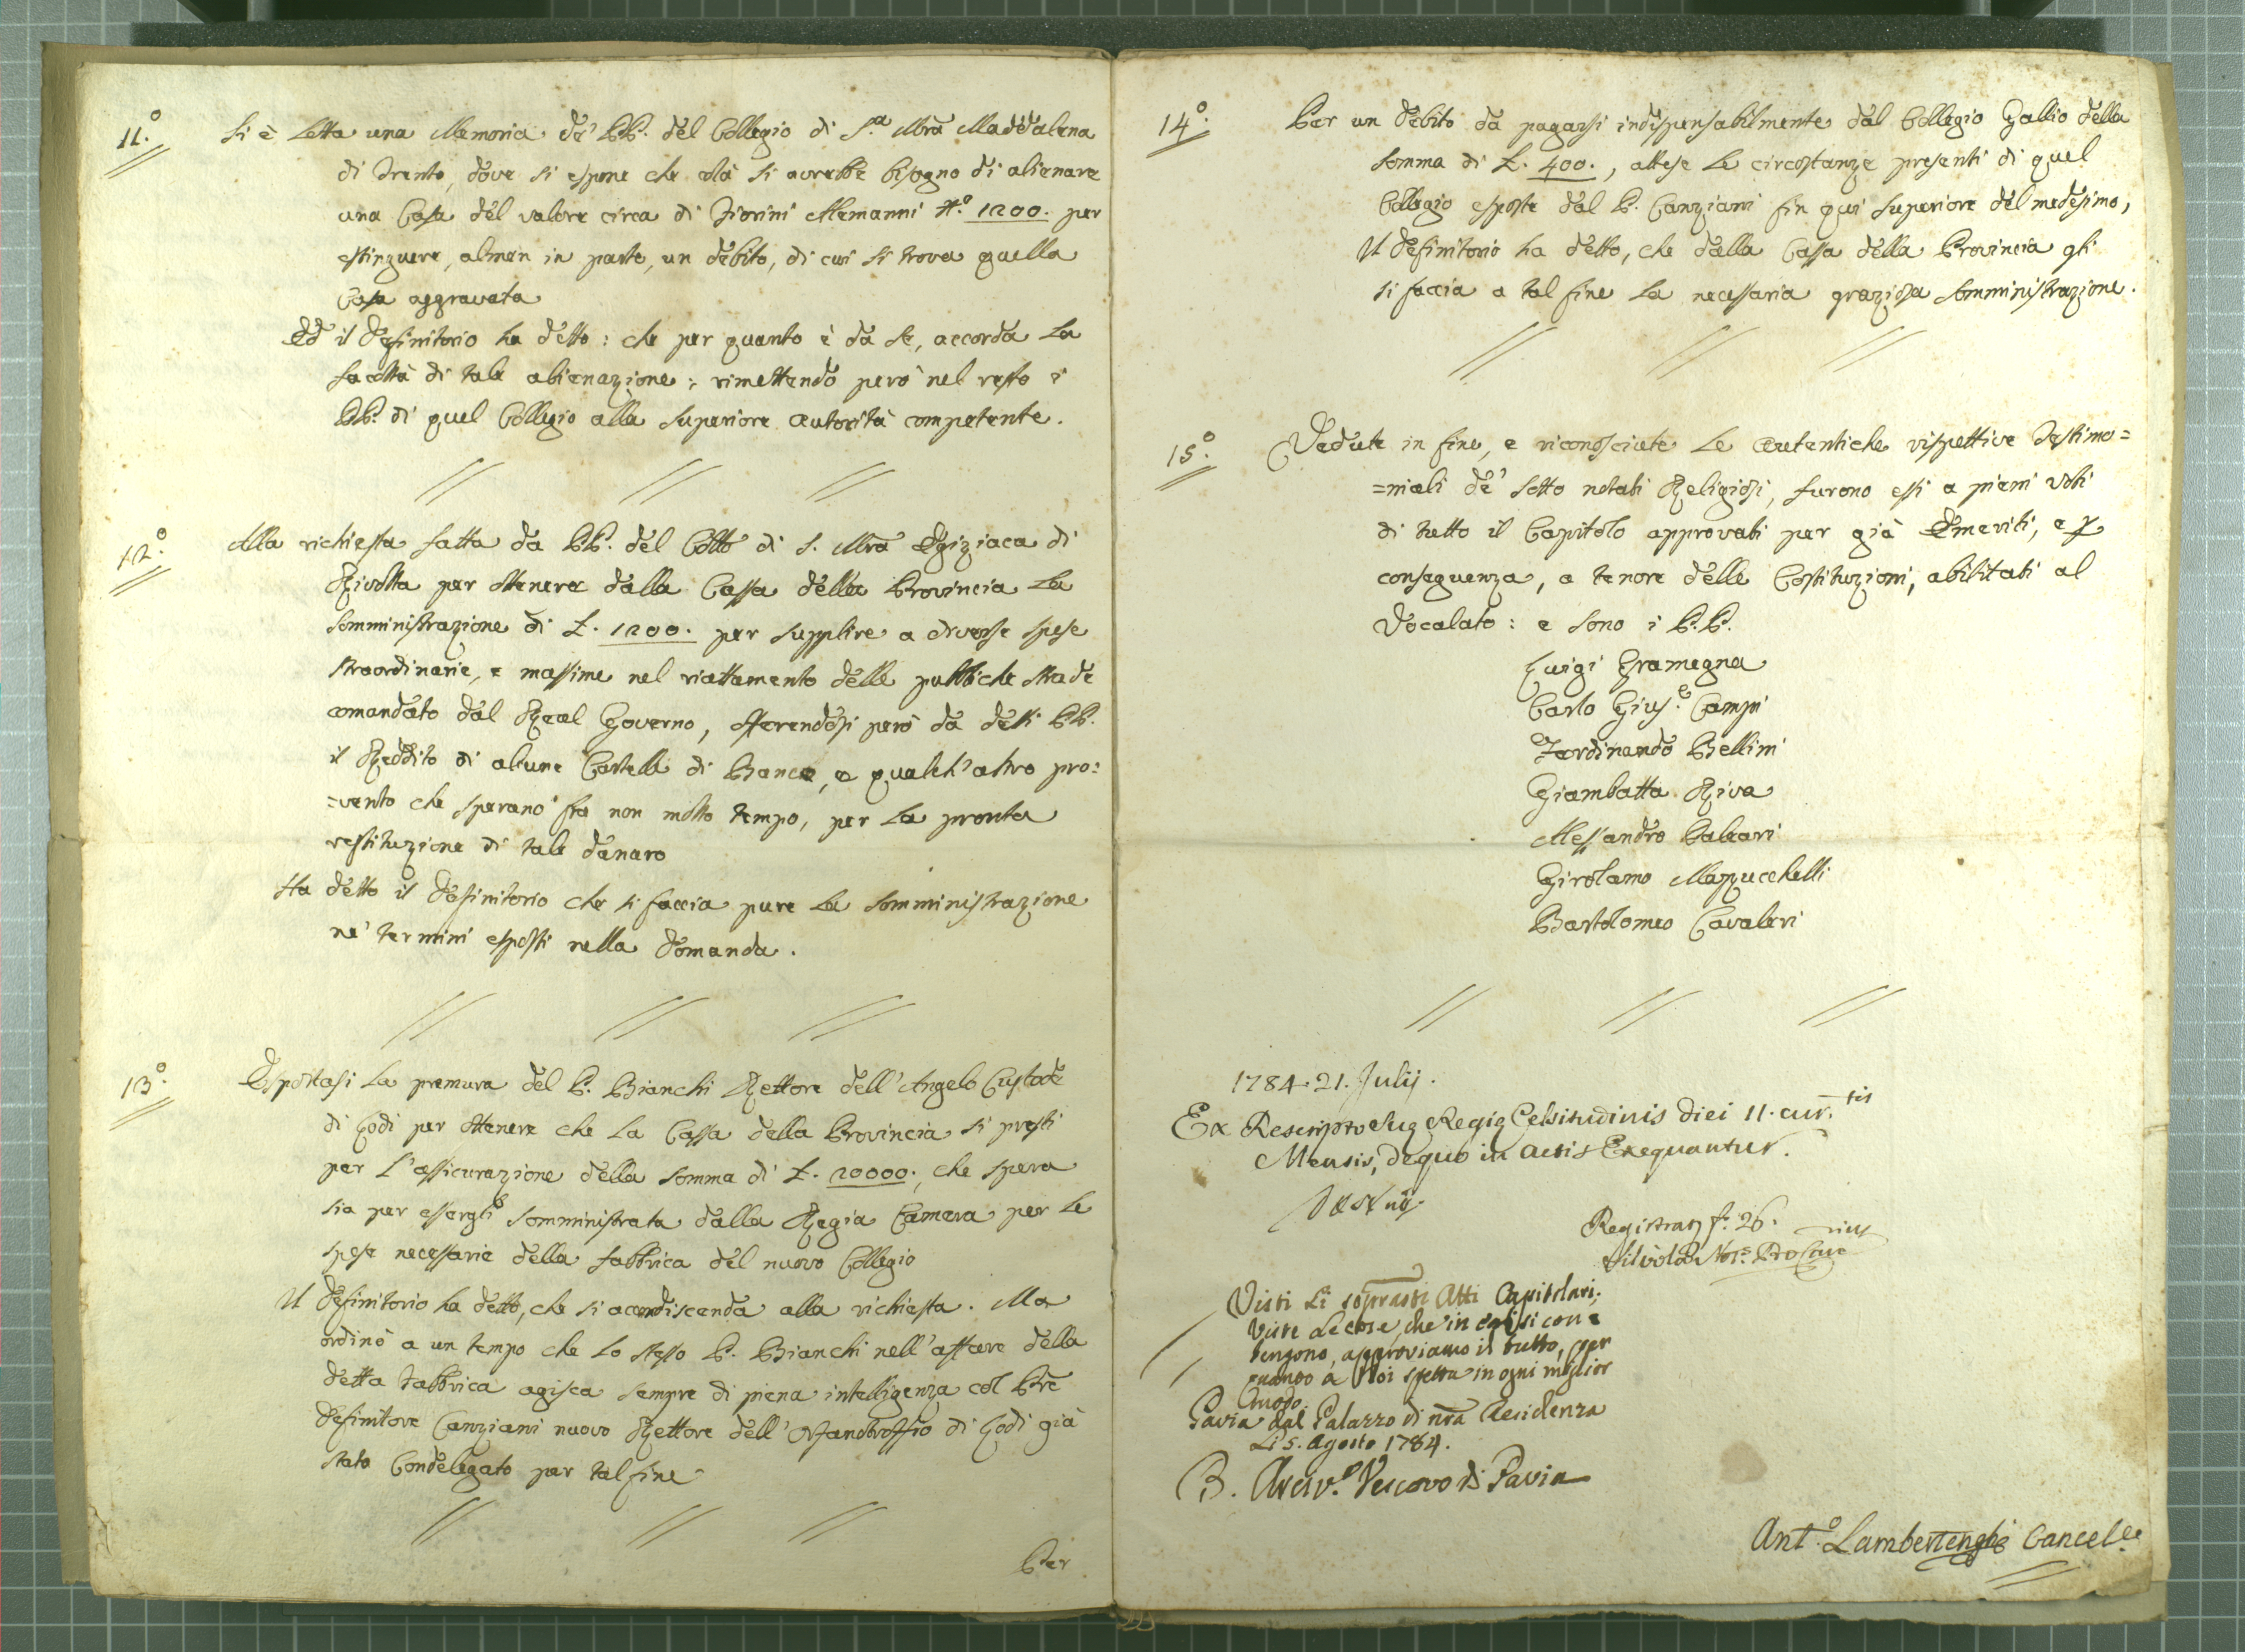 11.° Si è letta una Memoria de' PP. del Collegio di S.ª Mrã Maddalena
di Trento, dove si espone che colà si avrebbe bisogno di alienare
una Casa del valore circa di Fiorini Alemanni N.° 1200. per
estinguere, almen in parte, un debito, di cui si trova quella
Casa aggravata
Ed il Definitorio ha detto: che per quanto è da se, accorda la
facoltà di tale alienazione; rimettendo però nel resto i
PP. di quel Collegio alla superiore autorità competente.
12.° Alla richiesta fatta da PP. del Collº di S. Mrã Egiziaca di
Rivolta per ottenere dalla Cassa della Provincia la
somministrazione di L. 1200. per supplire a diverse spese
straordinarie, e massime nel riattamento delle pubbliche strade
comandato dal Real Governo, offerendosi però da detti PP.
il Reddito di alcune Cartelle di Banco, e qualch'altro pro=
=vento che sperano fra non molto tempo, per la pronta
restituzione di tale danaro
Ha detto il Definitorio che si faccia pure la somministrazione
ne' termini esposti nella domanda.
13.° Espostasi la premura del P. Bianchi Rettore dell'Angelo Custode
di Lodi per ottenere che la Cassa della Provincia si presti
per l'assicurazione della somma di L. 20000. che spera
sia per essergli somministrata dalla Regia Camera per le
spese necessarie della fabbrica del nuovo Collegio
Il Definitorio ha detto, che si accondiscenda alla richiesta. Ma
ordinò a un tempo che lo stesso P. Bianchi nell'affare della
detta Fabbrica agisca sempre di piena intelligenza col Pre
Definitore Canziani nuovo Rettore dell'Orfanotroffio di Lodi già
stato Condelegato per tal fine
Per
14.° Per un debito da pagarsi indispensabilmente dal Collegio Gallio della
somma di L. 400., attese le circostanze presenti di quel
Collegio esposte dal P. Canziani fin qui superiore del medesimo,
Il Definitorio ha detto, che dalla Cassa della Provincia gli
si faccia a tal fine la necessaria graziosa somministrazione.
15.° Vedute in fine, e riconosciute le autentiche rispettive Testimo=
=niali de' sotto notati Religiosi, furono essi a pieni voti
di tutto il Capitolo approvati per già Emeriti, e p
conseguenza, a tenore delle Costituzioni, abilitati al
Vocalato: e sono i P.P.
Luigi Gramegna
Carlo Gius.e Campi
Ferdinando Bellini
Giambatta Riva
Alessandro Paleari
Girolamo Mazzucchelli
Bartolomeo Cavaleri
1784. 21. Julij.
Ex Rescripto Suę Regię Celsitudinis diei 11. cur.tis
Mensis, de quo in actis Exequantur.
Registrat f. 26.
Visti li soprastti Atti Capitolari;
Viste le cose, che in essi si con=
tengono, approviamo il tutto, per
quanto a Noi spetta in ogni miglior
modo.
Pavia dal Palazzo di nrã Residenza
Li 5. Agosto 1784.
B. Arciv.º Vescovo di Pavia
Ant.º Lambertenghi Cancel.e